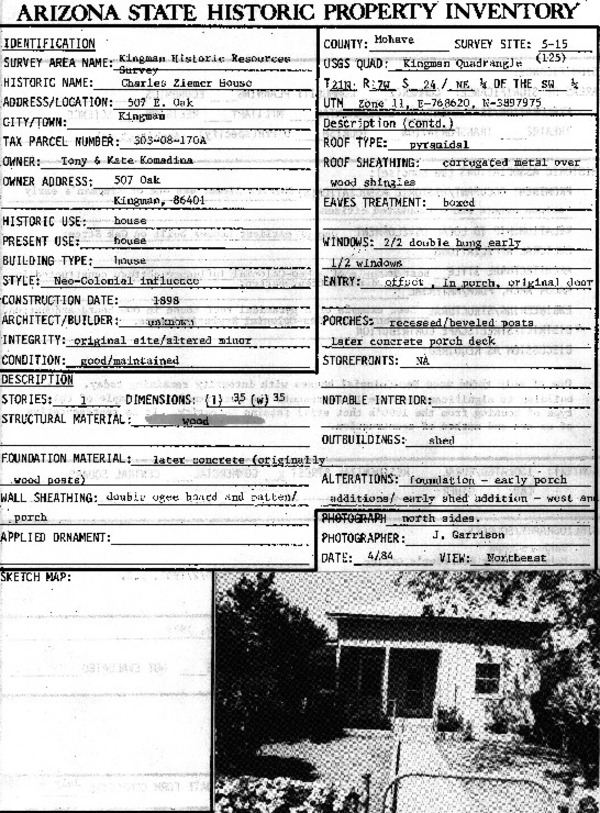 ARIZONA STATE HISTORIC PROPERTY INVENTORY
IDENTIFICATION
SURVEY AREA NAME: Kingman Historic Resources
Survey
HISTORIC NAME: Charles Ziemer House
ADDRESS/LOCATION: 507 E. Oak
CITY/TOWN: Kingman
TAX PARCEL NUMBER: 303-08-170A
OWNER: Tony & Kate Komadina
OWNER ADDRESS: 507 Oak
Kingman, 86401
HISTORIC USE: house
PRESENT USE: house
BUILDING TYPE: house
STYLE: Neo-Colonial influence
CONSTRUCTION DATE: 1898
ARCHITECT/BUILDER: unknown
INTEGRITY: original site/altered minor
CONDITION: good/maintained
COUNTY: Mohave SURVEY SITE: 5-15
(125)
USGS QUAD: Kingman Quadrangle
T 21N. R 17W S 24 / NE ¼ OF THE SW ¼
UTM Zone 11, E-768620, N-3897975
Description (contd.)
ROOF TYPE: pyramidal
ROOF SHEATHING: corrugated metal over
wood shingles
EAVES TREATMENT: boxed
WINDOWS: 2/2 double hung early
1/2 windows
ENTRY: offset, in porch, original door
PORCHES: recessed/beveled posts
Later concrete porch deck
STOREFRONTS: NA
DESCRIPTION
STORIES: 1 DIMENSIONS: (l) 35 (w) 35
STRUCTURAL MATERIAL: wood
FOUNDATION MATERIAL: later concrete (originally
wood posts)
WALL SHEATHING: double ogee board and batten/
porch
APPLIED ORNAMENT:
NOTABLE INTERIOR:
OUTBUILDINGS: shed
ALTERATIONS: foundation - early porch
additions/ early shed addition - west and
north sides.
PHOTOGRAPH
PHOTOGRAPHER: J. Garrison
DATE: 4/84 VIEW: Northeast
SKETCH MAP: